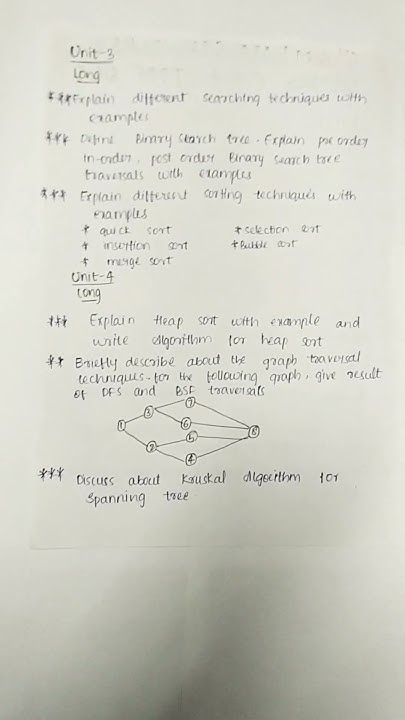 Unit-3
Long
***Explain different searching techniques with
examples
*** Define Binary search tree. Explain pre order
in-order, post order Binary search tree
traversals with examples
*** Explain different sorting techniques with
examples
* quick sort * selection sort
* insertion sort * Bubble sort
* merge sort
Unit-4
Long
*** Explain Heap sort with example and
write Algorithm for heap sort
** Briefly describe about the graph traversal
techniques. for the following graph, give result
of DFS and BSF traversals
7
3
1 6
5 8
2
4
*** Discuss about Kruskal Algorithm for
spanning tree